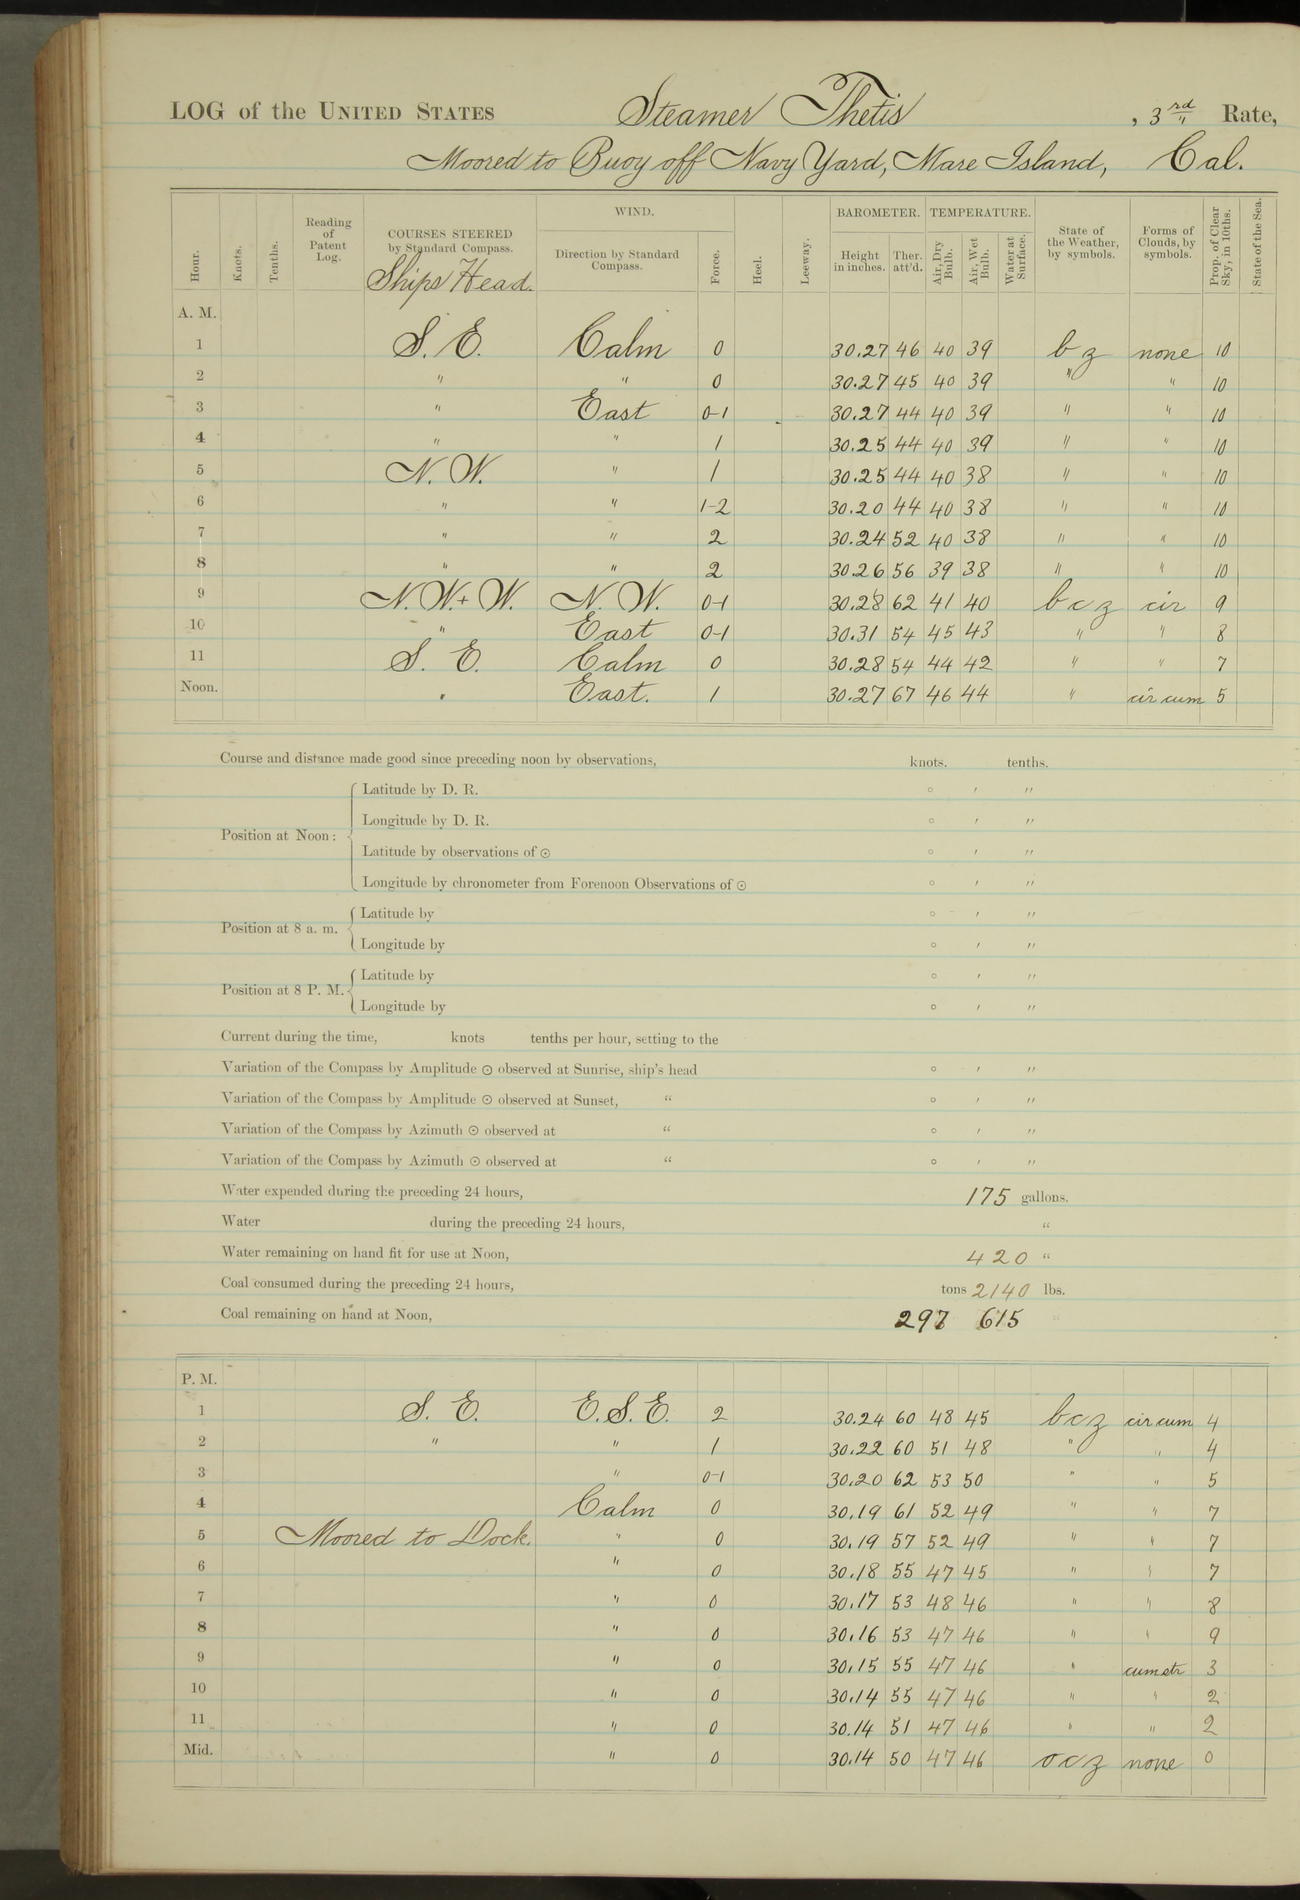 LOG of the UNITED STATES Steamer Thetis , 3rd Rate,
Moored to Buoy off Navy Yard, Mare Island, Cal.
Hour. Knots. Tenths. Reading of Patent Log. COURSES STEERED by Standard Compass. Ships Head. WIND. Direction by Standard Compass. Force. Heel. Leeway. BAROMETER. Height in inches. Ther. att'd. TEMPERATURE. Air, Dry Bulb. Air, Wet Bulb. Water at Surface. State of the Weather, by symbols. Forms of Clouds, by symbols. Prop. of Clear Sky, in 10ths. State of the Sea.
A. M.
1 S. E. Calm 0 30.27 46 40 39 b z none 10
2 " " 0 30.27 45 40 39 " " 10
3 " East 0-1 30.27 44 40 39 " " 10
4 " " 1 30.25 44 40 39 " " 10
5 N. W. " 1 30.25 44 40 38 " " 10
6 " " 1-2 30.20 44 40 38 " " 10
7 " " 2 30.24 52 40 38 " " 10
8 " " 2 30.26 56 39 38 " " 10
9 N. W. + W. N. W. 0-1 30.28 62 41 40 b c z cir 9
10 " East 0-1 30.31 54 45 43 " " 8
11 S. E. Calm 0 30.28 54 44 42 " " 7
Noon. " East. 1 30.27 67 46 44 " cir cum 5
Course and distance made good since preceding noon by observations, knots. tenths.
Position at Noon: Latitude by D. R. ° ′ ″
Longitude by D. R. ° ′ ″
Latitude by observations of ☉ ° ′ ″
Longitude by chronometer from Forenoon Observations of ☉ ° ′ ″
Position at 8 a. m. Latitude by ° ′ ″
Longitude by ° ′ ″
Position at 8 P. M. Latitude by ° ′ ″
Longitude by ° ′ ″
Current during the time, knots tenths per hour, setting to the
Variation of the Compass by Amplitude ☉ observed at Sunrise, ship's head ° ′ ″
Variation of the Compass by Amplitude ☉ observed at Sunset, “ ° ′ ″
Variation of the Compass by Azimuth ☉ observed at “ ° ′ ″
Variation of the Compass by Azimuth ☉ observed at “ ° ′ ″
Water expended during the preceding 24 hours, 175 gallons.
Water during the preceding 24 hours, “
Water remaining on hand fit for use at Noon, 420 “
Coal consumed during the preceding 24 hours, tons 2140 lbs.
Coal remaining on hand at Noon, 297 615 “
P. M.
1 S. E. E. S. E. 2 30.24 60 48 45 b c z cir cum 4
2 " " 1 30.22 60 51 48 " " 4
3 " 0-1 30.20 62 53 50 " " 5
4 Calm 0 30.19 61 52 49 " " 7
5 Moored to Dock. " 0 30.19 57 52 49 " " 7
6 " 0 30.18 55 47 45 " " 7
7 " 0 30.17 53 48 46 " " 8
8 " 0 30.16 53 47 46 " " 9
9 " 0 30.15 55 47 46 " cum str 3
10 " 0 30.14 55 47 46 " " 2
11 " 0 30.14 51 47 46 " " 2
Mid. " 0 30.14 50 47 46 o c z none 0